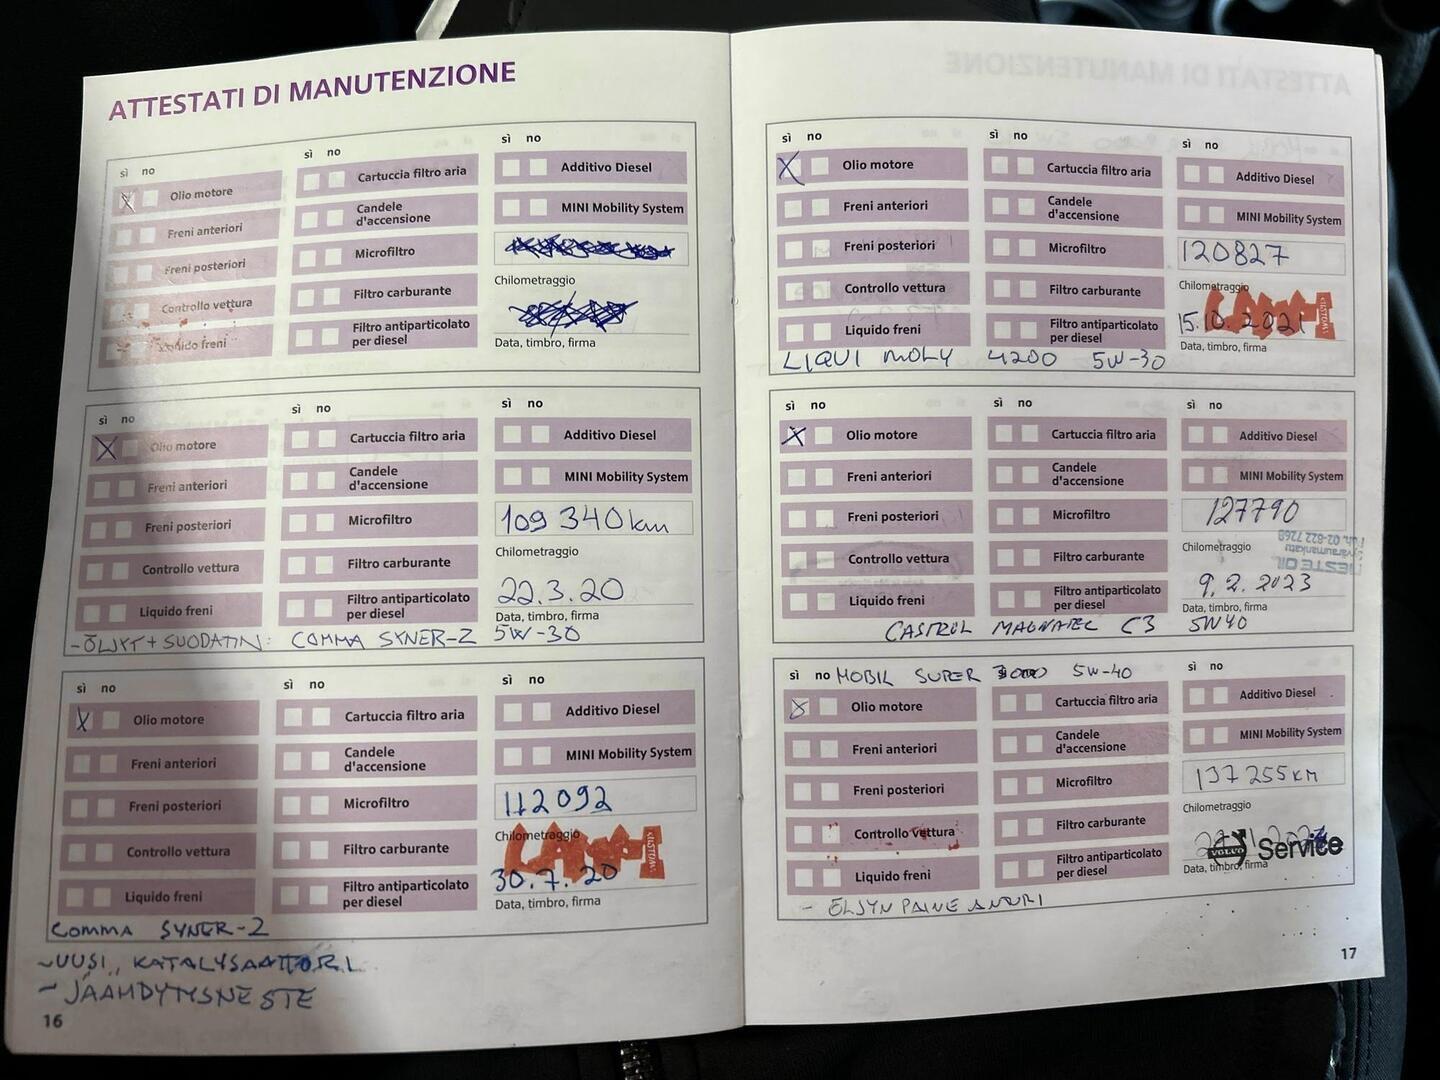 ATTESTATI DI MANUTENZIONE
sì no
Olio motore
Freni anteriori
Freni posteriori
Controllo vettura
Liquido freni
sì no
Cartuccia filtro aria
Candele
d'accensione
Microfiltro
Filtro carburante
Filtro antiparticolato
per diesel
sì no
Additivo Diesel
MINI Mobility System
Chilometraggio
Data, timbro, firma
sì no
Olio motore
Freni anteriori
Freni posteriori
Controllo vettura
Liquido freni
sì no
Cartuccia filtro aria
Candele
d'accensione
Microfiltro
Filtro carburante
Filtro antiparticolato
per diesel
sì no
Additivo Diesel
MINI Mobility System
109 340 km
Chilometraggio
22.3.20
Data, timbro, firma
-ÖLJYT + SUODATIN: COMMA SYNER-Z 5W-30
sì no
Olio motore
Freni anteriori
Freni posteriori
Controllo vettura
Liquido freni
sì no
Cartuccia filtro aria
Candele
d'accensione
Microfiltro
Filtro carburante
Filtro antiparticolato
per diesel
sì no
Additivo Diesel
MINI Mobility System
112092
Chilometraggio
30.7.20
Data, timbro, firma
COMMA SYNER-Z
-UUSI KATALYSAATTORI
- JÄÄHDYTYSNESTE
16
sì no
Olio motore
Freni anteriori
Freni posteriori
Controllo vettura
Liquido freni
sì no
Cartuccia filtro aria
Candele
d'accensione
Microfiltro
Filtro carburante
Filtro antiparticolato
per diesel
sì no
Additivo Diesel
MINI Mobility System
120827
Chilometraggio
15.10.2021
Data, timbro, firma
LIQUI MOLY 4200 5W-30
sì no
Olio motore
Freni anteriori
Freni posteriori
Controllo vettura
Liquido freni
sì no
Cartuccia filtro aria
Candele
d'accensione
Microfiltro
Filtro carburante
Filtro antiparticolato
per diesel
sì no
Additivo Diesel
MINI Mobility System
127790
Chilometraggio
NESTE OIL
Puh. 02-822 7268
9.2.2023
Data, timbro, firma
CASTROL MAGNATEC C3 5W40
sì no MOBIL SUPER 3000 5W-40
Olio motore
Freni anteriori
Freni posteriori
Controllo vettura
Liquido freni
Cartuccia filtro aria
Candele
d'accensione
Microfiltro
Filtro carburante
Filtro antiparticolato
per diesel
sì no
Additivo Diesel
MINI Mobility System
137255 KM
Chilometraggio
VOLVO Service
Data, timbro, firma
- ÖLJYN PAINE ANTURI
17